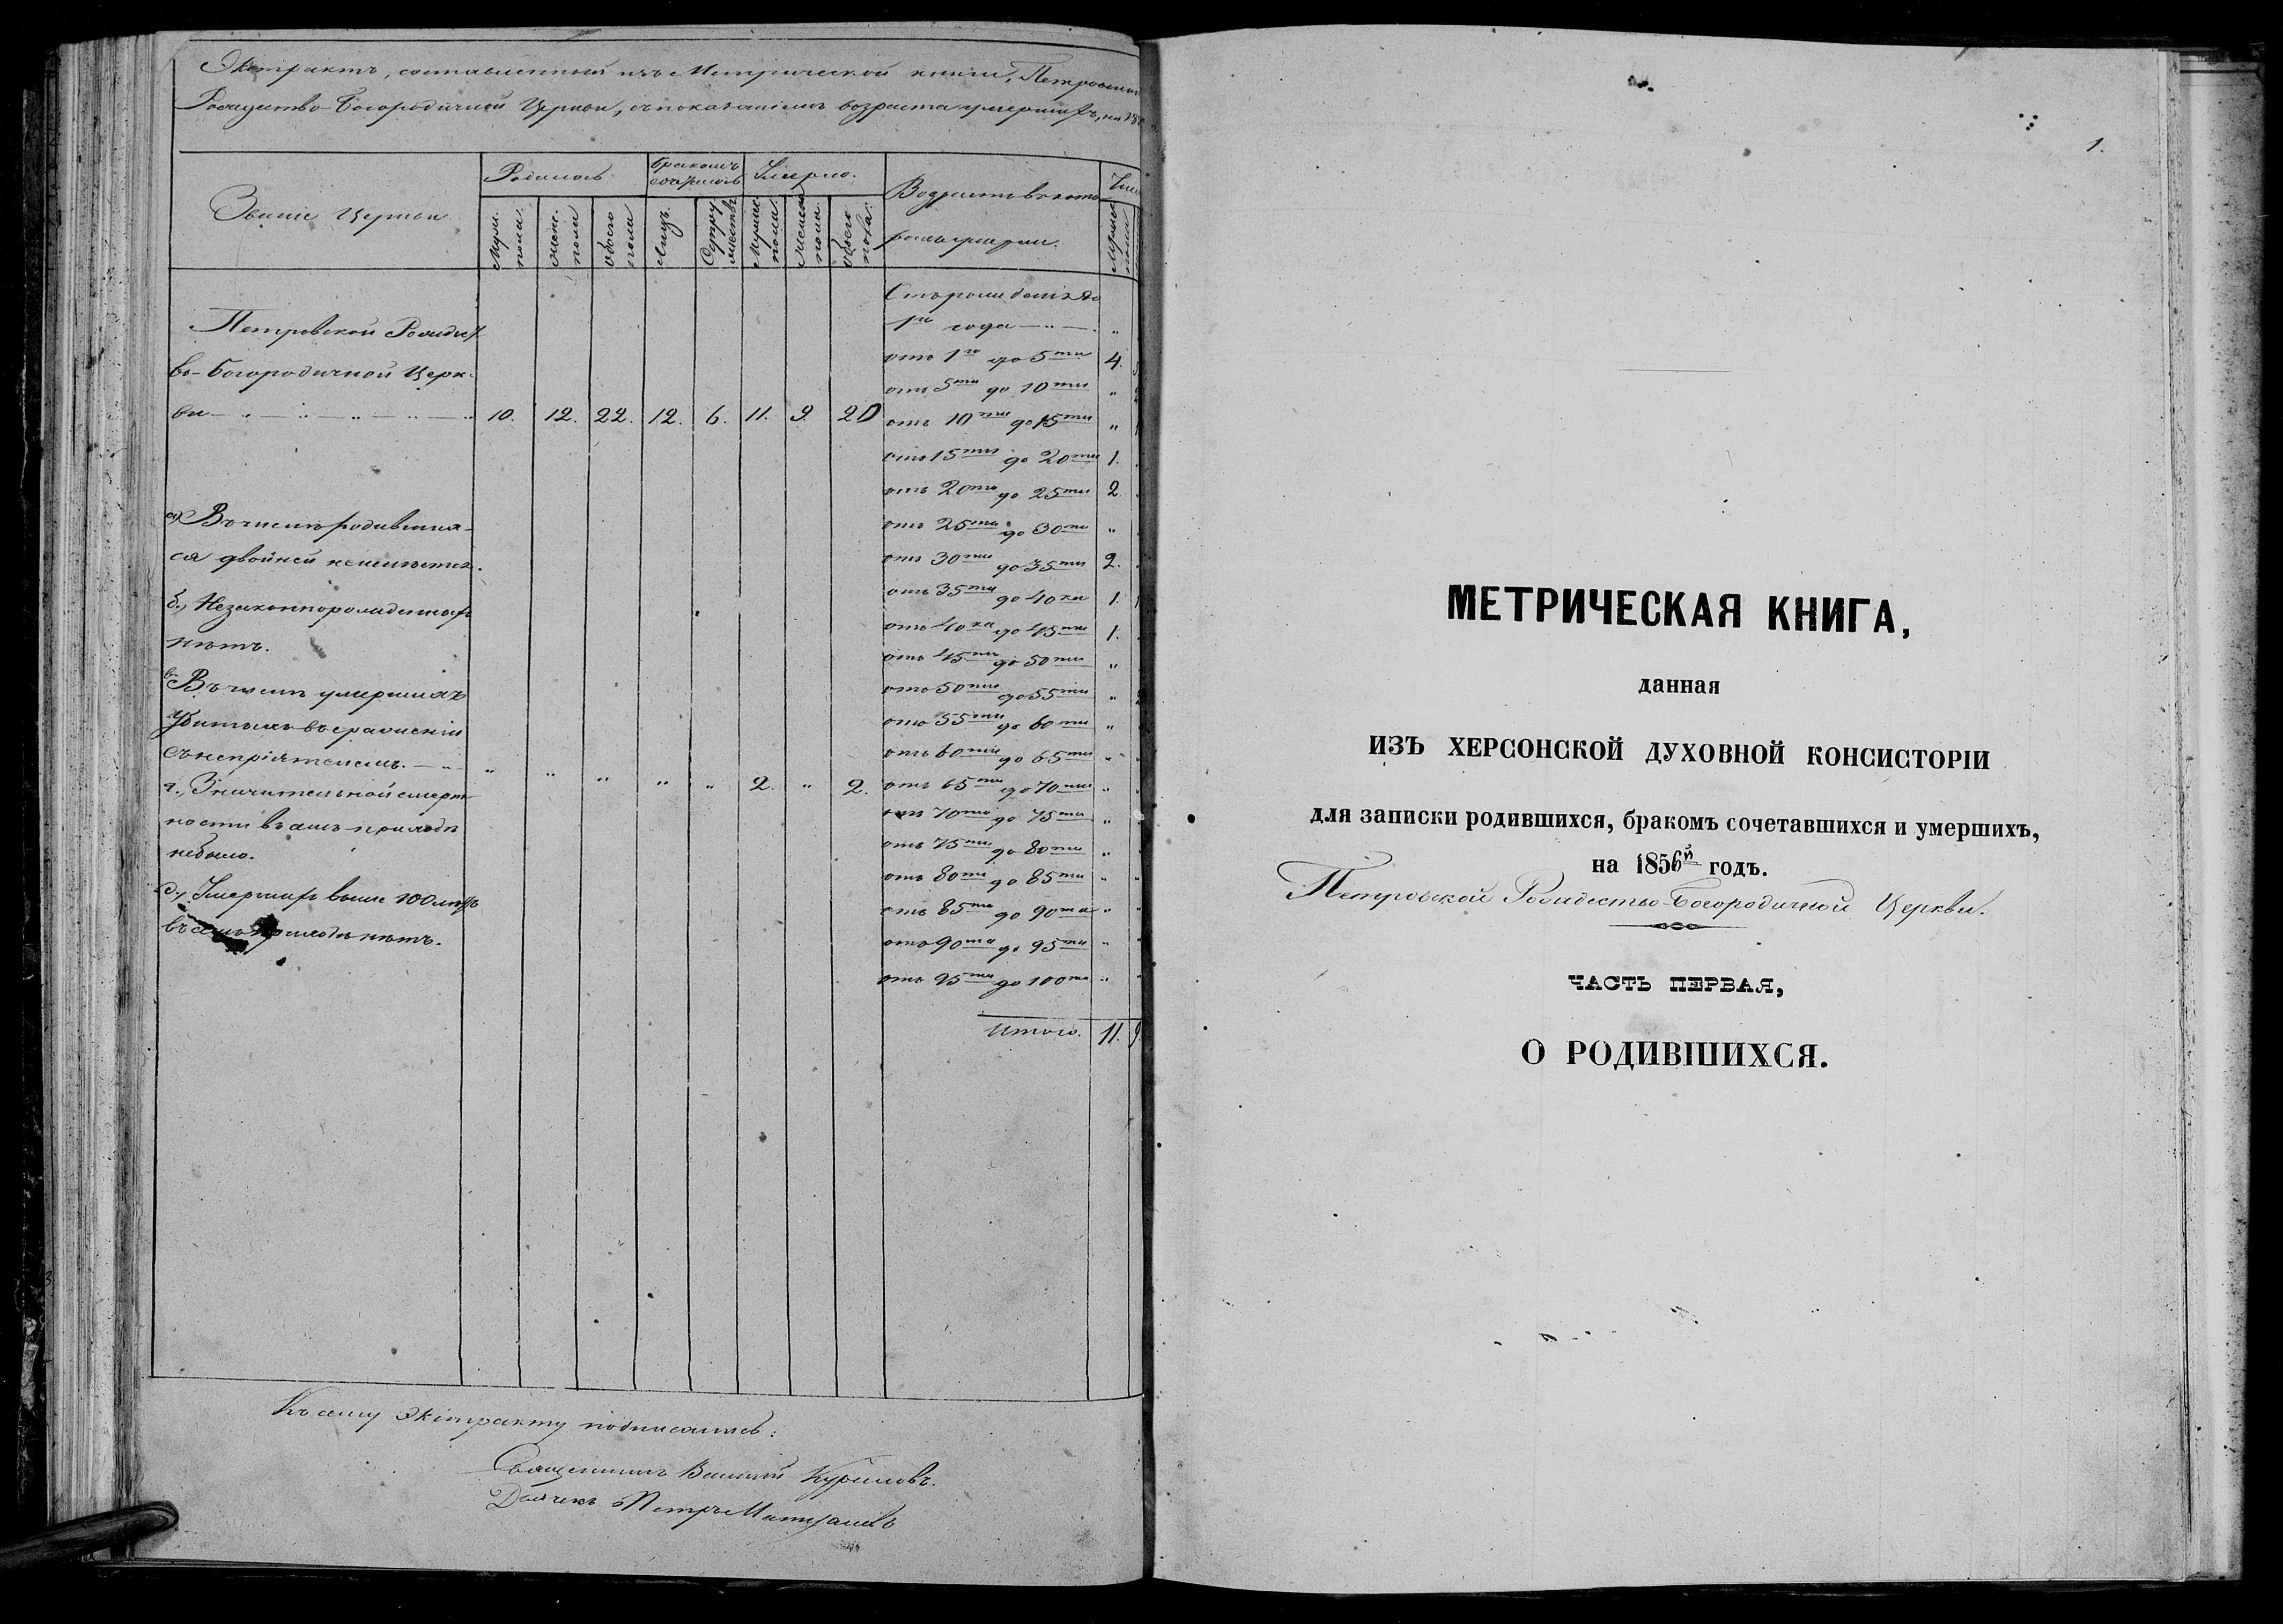 Экстрактъ, составленный изъ Метрической книги, Петровской
Рождество-Богородичной Церкви, съ показаніемъ возраста умершихъ, на 18
Званіе Церкви.
Родилось
Бракомъ
сочеталось
Умерло.
Возрастъ въ кото
ромъ умерли.
Чис
Муж.
пола.
жен.
пола
обоего
пола
Лицъ.
Супру
жествъ
Мужес.
пола.
Женск.
пола.
обоего
пола.
Мужес
пола
Петровской Рождест
во-Богородичной Церк-
ви — „ — „ — „ — „ — „ 10. 12. 22. 12. 6. 11. 9. 20
Отъ рожденія до
1го года — „ — „
отъ 1го до 5ти 4.
отъ 5ти до 10ти „
отъ 10ти до 15ти „
отъ 15ти до 20ти 1.
отъ 20ти до 25ти 2.
отъ 25ти до 30ти „
отъ 30ти до 35ти 2.
отъ 35ти до 40ка 1.
отъ 40ка до 45ти 1.
отъ 45ти до 50ти „
отъ 50ти до 55ти „
отъ 55ти до 60ти „
отъ 60ти до 65ти „
отъ 65ти до 70ти „
отъ 70ти до 75ти „
отъ 75ти до 80ти „
отъ 80ти до 85ти „
отъ 85ти до 90та „
отъ 90та до 95ти „
отъ 95ти до 100та „
Итого. 11. 9.
а) Въ числѣ родивших-
ся двойней неимѣется.
б., Незаконнорожденныхъ
нѣтъ.
в. Въ числѣ умершихъ
убитыхъ въ сраженіи
съ непріятелемъ. — „ „ „ „ „ „ 2. „ 2.
г., Значительной смерт
ности въ семъ приходѣ
небыло.
д., Умершихъ выше 100 лѣтъ
въ семъ приходѣ нѣтъ.
Къ сему Экстракту подписались:
Священникъ Василій Куриловъ.
Дьячекъ Петръ
1.
МЕТРИЧЕСКАЯ КНИГА,
данная
ИЗЪ ХЕРСОНСКОЙ ДУХОВНОЙ КОНСИСТОРІИ
для записки родившихся, бракомъ сочетавшихся и умершихъ,
на 1856й годъ.
Петровской Рождество-Богородичной Церкви.
ЧАСТЬ ПЕРВАЯ,
О РОДИВШИХСЯ.